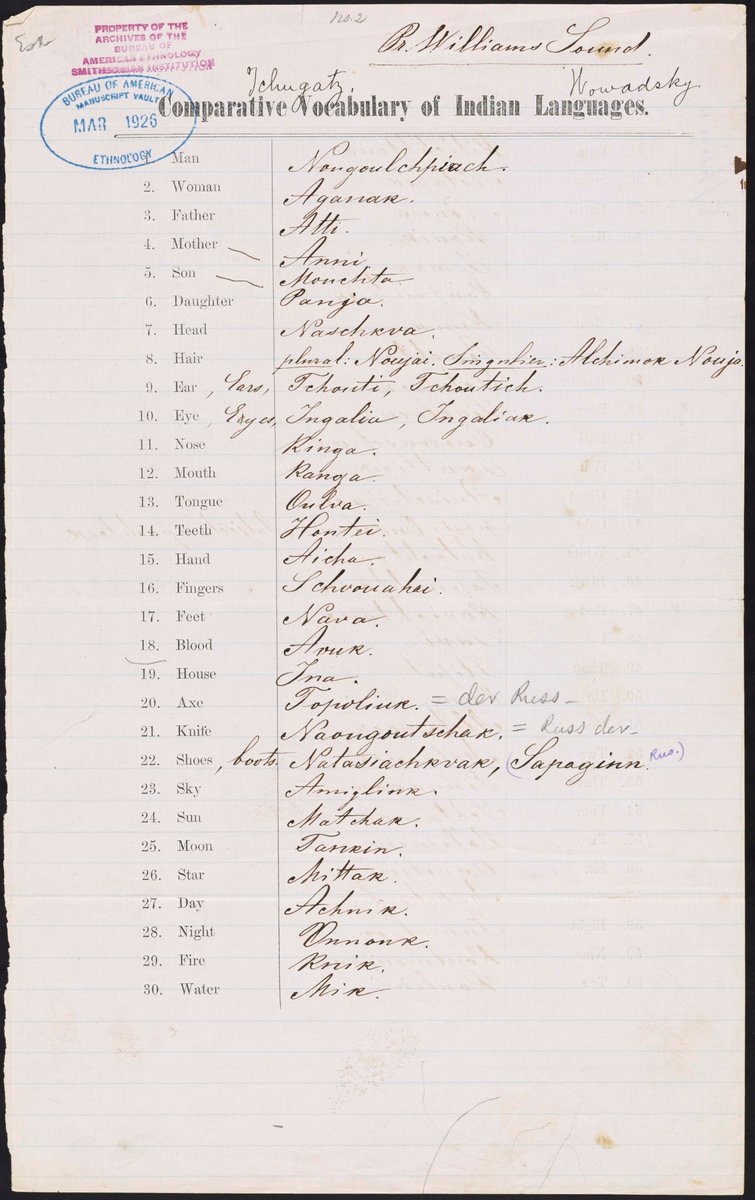 no. 2
Esk
PROPERTY OF THE
ARCHIVES OF THE
BUREAU OF
AMERICAN ETHNOLOGY
SMITHSONIAN INSTITUTION
Pr. Williams Sound.
Tchugatz. Wowadsky.
BUREAU OF AMERICAN
MANUSCRIPT VAULT
MAR 1926
ETHNOLOGY
Comparative Vocabulary of Indian Languages.
1. Man Nougoulchpiach.
2. Woman Aganak.
3. Father Atti.
4. Mother Anni.
5. Son Mouchta
6. Daughter Panja.
7. Head Naschkva.
8. Hair plural: Noujai, Singulier: Alchimok Nouja.
9. Ear, Ears, Tchouti, Tchoutich.
10. Eye, Eyes, Ingalia, Ingaliak.
11. Nose Kinga.
12. Mouth Kanga.
13. Tongue Oulva.
14. Teeth Hontei.
15. Hand Aicha.
16. Fingers Schvouahai.
17. Feet Nava.
18. Blood Aouk.
19. House Ina.
20. Axe Topoliuk. = der Russ-
21. Knife Naougoutschak. = Russ der-
22. Shoes, boots. Natasiachkvak, (Sapoginn. Rus.)
23. Sky Amiglink.
24. Sun Matchak.
25. Moon Tankin.
26. Star Mittak.
27. Day Achnik.
28. Night Onnouk.
29. Fire Knik.
30. Water Mik.